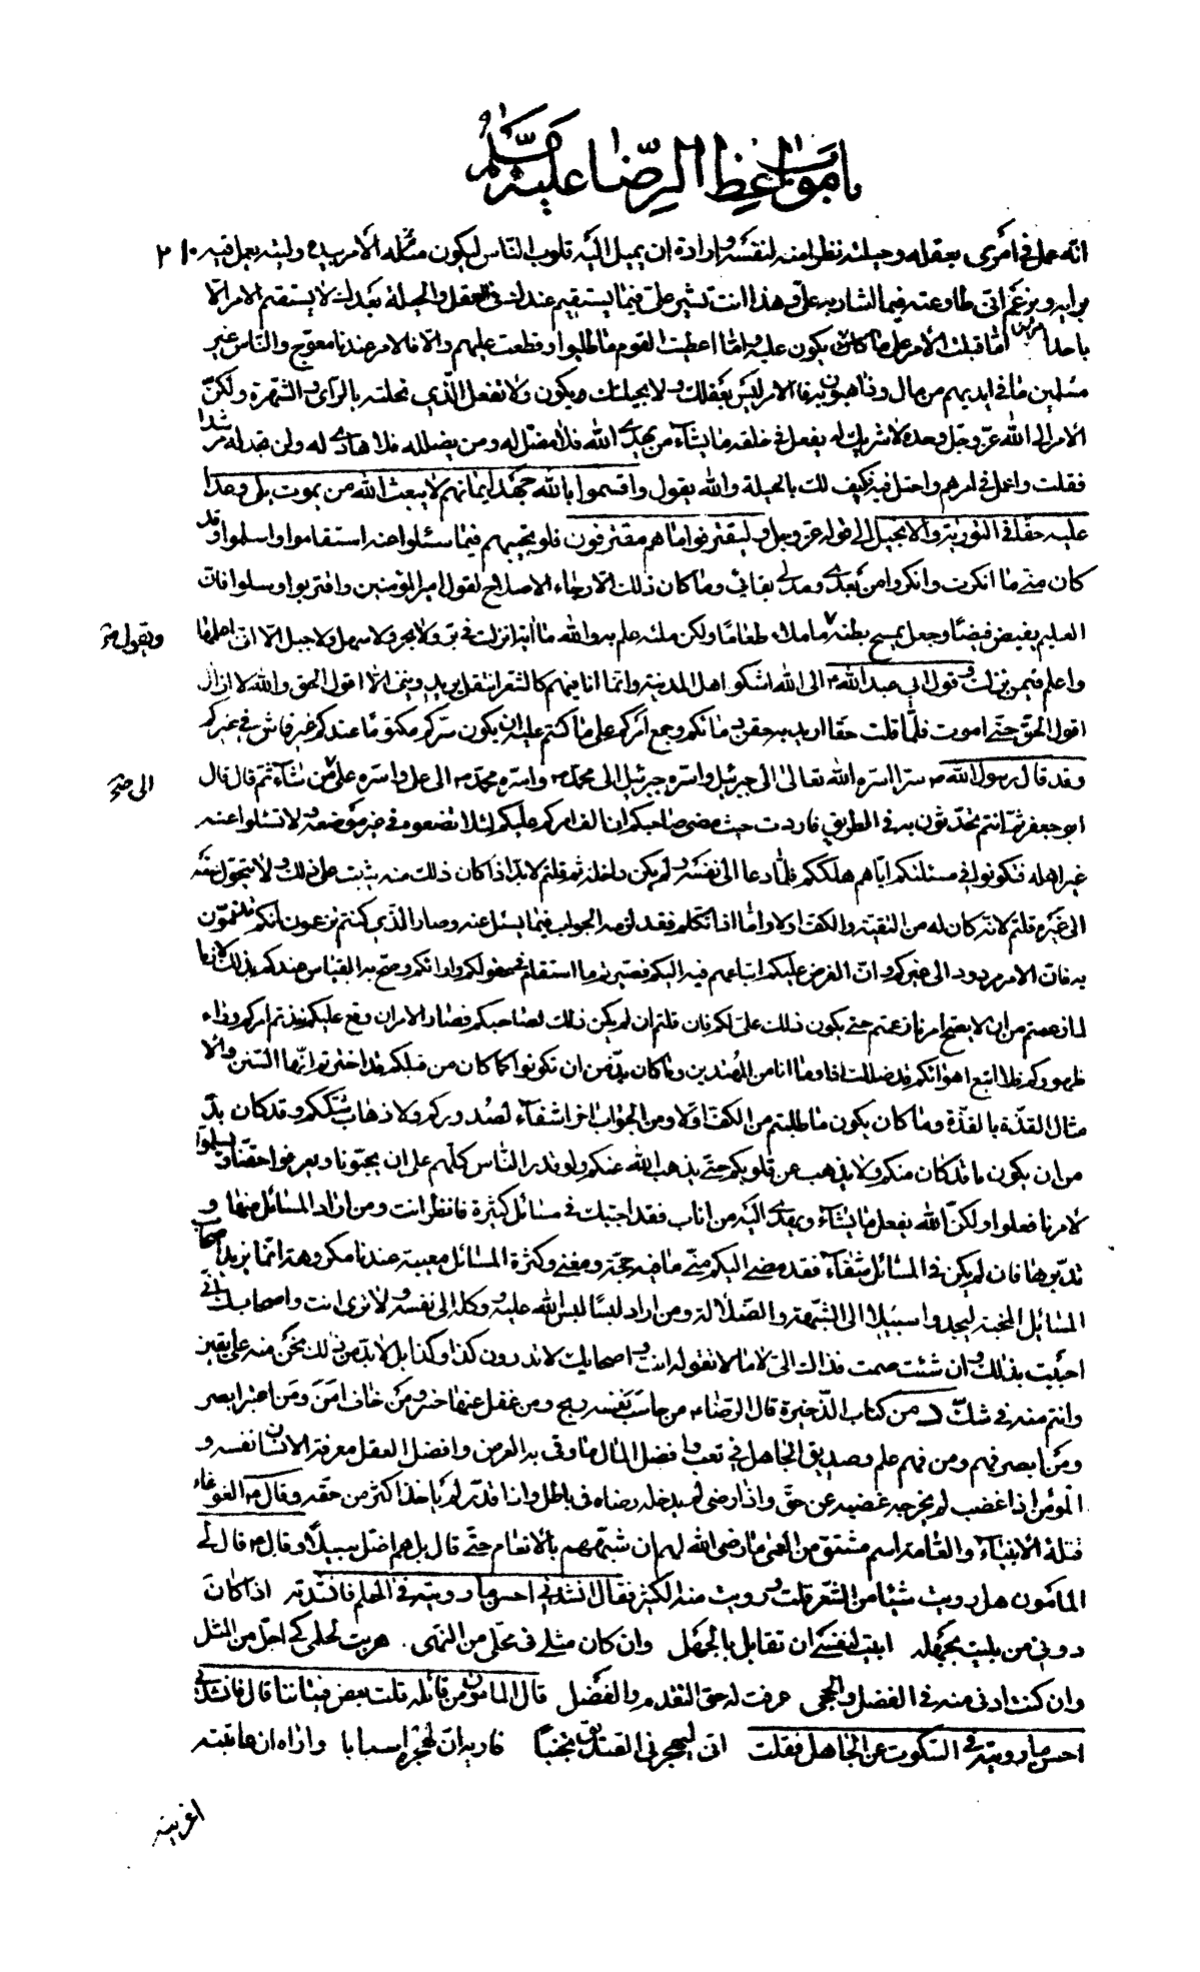 باب مواعظ الرضا عليه السلام
انه عمل في امرى بعقله وحيلته نظرا منه لنفسه وارادة ان يميل اليه قلوب الناس ليكون الأمر بيده وليته يعمل فيه ٢١٠
برايه ويزعم اني طاوعته فيما اشار به علي وهذا انت تشير علي فيما يستقيم عندك في العقل والحيلة بعدك لا يستقيم الامر الا
باحد امرين اما قبلت الأمر على ما كان يكون عليه واما اعطيت القوم ما طلبوا وقطعت عليهم والا فالامر عندنا معوج والناس غير
مسلمين ما في ايديهم من مال وذاهبون به فالامر ليس بعقلك ولا بحيلتك يكون ولا تفعل الذي نحلته بالرأى والشهرة ولكن
الامر الى الله عز وجل وحده لا شريك له يفعل في خلقه ما يشاء من يهدي الله فلا مضل له ومن يضلله فلا هادي له ولن تجد له مرشدا
فقلت واعمل في امرهم واحتل فيه وكيف لك بالحيلة والله يقول واقسموا بالله جهد ايمانهم لا يبعث الله من يموت بلى وعدا
عليه حقا في التورية والانجيل الى قوله عز وجل وليقترفوا ما هم مقترفون فلو تجيبهم فيما سئلوا عنه استقاموا واسلموا وقد
كان مني ما انكرت وانكروا من بعدي ومد لي بقائي وما كان ذلك الا رجاء الاصلاح لقول امير المؤمنين واقتربوا وسلوا فان
العلم يفيض فيضا وجعل يمسح بطنه ما ملئ طعاما ولكن ملئه علم والله ما اية انزلت في بر ولا بحر ولا سهل ولا جبل الا اني اعلمها
ويقول
واعلم فيمن نزلت وقول ابي عبد الله الى الله اشكو اهل المدينة وانما انا فيهم كالشعر انتقل يريدونني الا اقول الحق والله لا ازال
اقول الحق حتى اموت فلما قلت حقا اريد به حقن دمائكم وجمع امركم على ما كنتم عليه ان يكون سركم مكتوما عندكم غير فاش في غيركم
وقد قال رسول الله سرا اسره الله تعالى الى جبرئيل واسره جبرئيل الى محمد واسره محمد الى علي واسره علي الى من شاء ثم قال قال
الى
ابو جعفر ثم انتم تحدثون به في الطريق فاردت حيث مضى صاحبكم ان الف امركم عليكم لئلا تضعوه في غير موضعه ولا تسئلوا عنه
غير اهله فتكونوا في مسئلتكم اياهم هلكتم فلما دعا الى نفسه ولم يكن داخله ثم قلتم لا بد اذا كان ذلك منه يثبت على ذلك ولا يتحول عنه
الى غيره قلتم لانه كان له من التقية والكف اولا واما اذا تكلم فقد لزمه الجواب فيما يسئل عنه وصار الذي كنتم تزعمون انكم تذمون
به فان الامر مردود الى غيركم وان الفرض عليكم اتباعهم فيه اليكم فصيرتم ما استقام في عقولكم وارائكم وصح به القياس عندكم بذلك لازما
لما زعمتم من ان لا يصح امرنا زعمتم حتى يكون ذلك علي لكم فان قلتم ان لم يكن ذلك لصاحبكم فصار الامر ان وقع عليكم نبذتم امر ربكم وراء
ظهوركم فلا اتبع اهوائكم قد ضللت اذا وما انا من المهتدين وما كان بد من ان تكونوا كما كان من قبلكم قد اخبرتم انها السنن والا
مثال القذة بالقذة وما كان يكون ما طلبتم من الكف اولا ومن الجواب اخرا شفاء لصدوركم ولا ذهاب شككم وقد كان بد
من ان يكون ما قد كان منكم ولا يذهب عن قلوبكم حتى يذهبه الله عنكم ولو قدر الناس كلهم على ان يحبونا ويعرفوا حقنا ويسلموا
لامرنا فعلوا ولكن الله يفعل ما يشاء ويهدي اليه من اناب فقد اجبتك في مسائل كثيرة فانظر انت ومن اراد المسائل منها و
تدبرها فان لم يكن في المسائل شفاء فقد مضى اليكم مني ما فيه حجة ومغنى وكثرة المسائل معيبة عندنا مكروهة انما يريد اصحاب
المسائل المحنة ليجدوا سبيلا الى الشبهة والضلالة ومن اراد لبسا لبس الله عليه ووكله الى نفسه ولا ترى انت واصحابك اني
اجبت بذلك وان شئت صمت فذاك الي لا ما لا تقوله انت واصحابك لا تدرون كذا وكذا بل لا بد من ذلك نحن منه على يقين
وانتم منه في شك د من كتاب الذخيرة قال الرضا من حاسب نفسه ربح ومن غفل عنها خسر ومن خاف امن ومن اعتبر ابصر
ومن ابصر فهم ومن فهم علم وصديق الجاهل في تعب وافضل المال ما وقي به العرض وافضل العقل معرفة الانسان نفسه و
المؤمن اذا غضب لم يخرجه غضبه عن حق واذا رضى لم يدخله رضاه في باطل واذا قدر لم يأخذ اكثر من حقه وقال الغوغاء
قتلة الأنبياء والعامة اسم مشتق من العمى ما رضى الله لهم ان شبههم بالانعام حتى قال بل هم اضل سبيلا وقال قال لي
المأمون هل رويت شيئا من الشعر قلت ورويت منه الكثير فقال انشدني احسن ما رويته في الحلم فانشدته اذا كان
دوني من بليت بجهله ابيت لنفسي ان تقابل بالجهل وان كان مثلي في محلي من النهى هربت لحلمي كي اجل من المثل
وان كنت ادنى منه في الفضل والحجى عرفت له حق التقدم والفضل قال المأمون من قائله قلت بعض فتياننا قال فانشدني
احسن ما رويته في السكوت عن الجاهل فقلت اني ليهجرني الصديق تجنبا فاريه ان لهجره اسبابا واراه ان عاتبته
اغريته